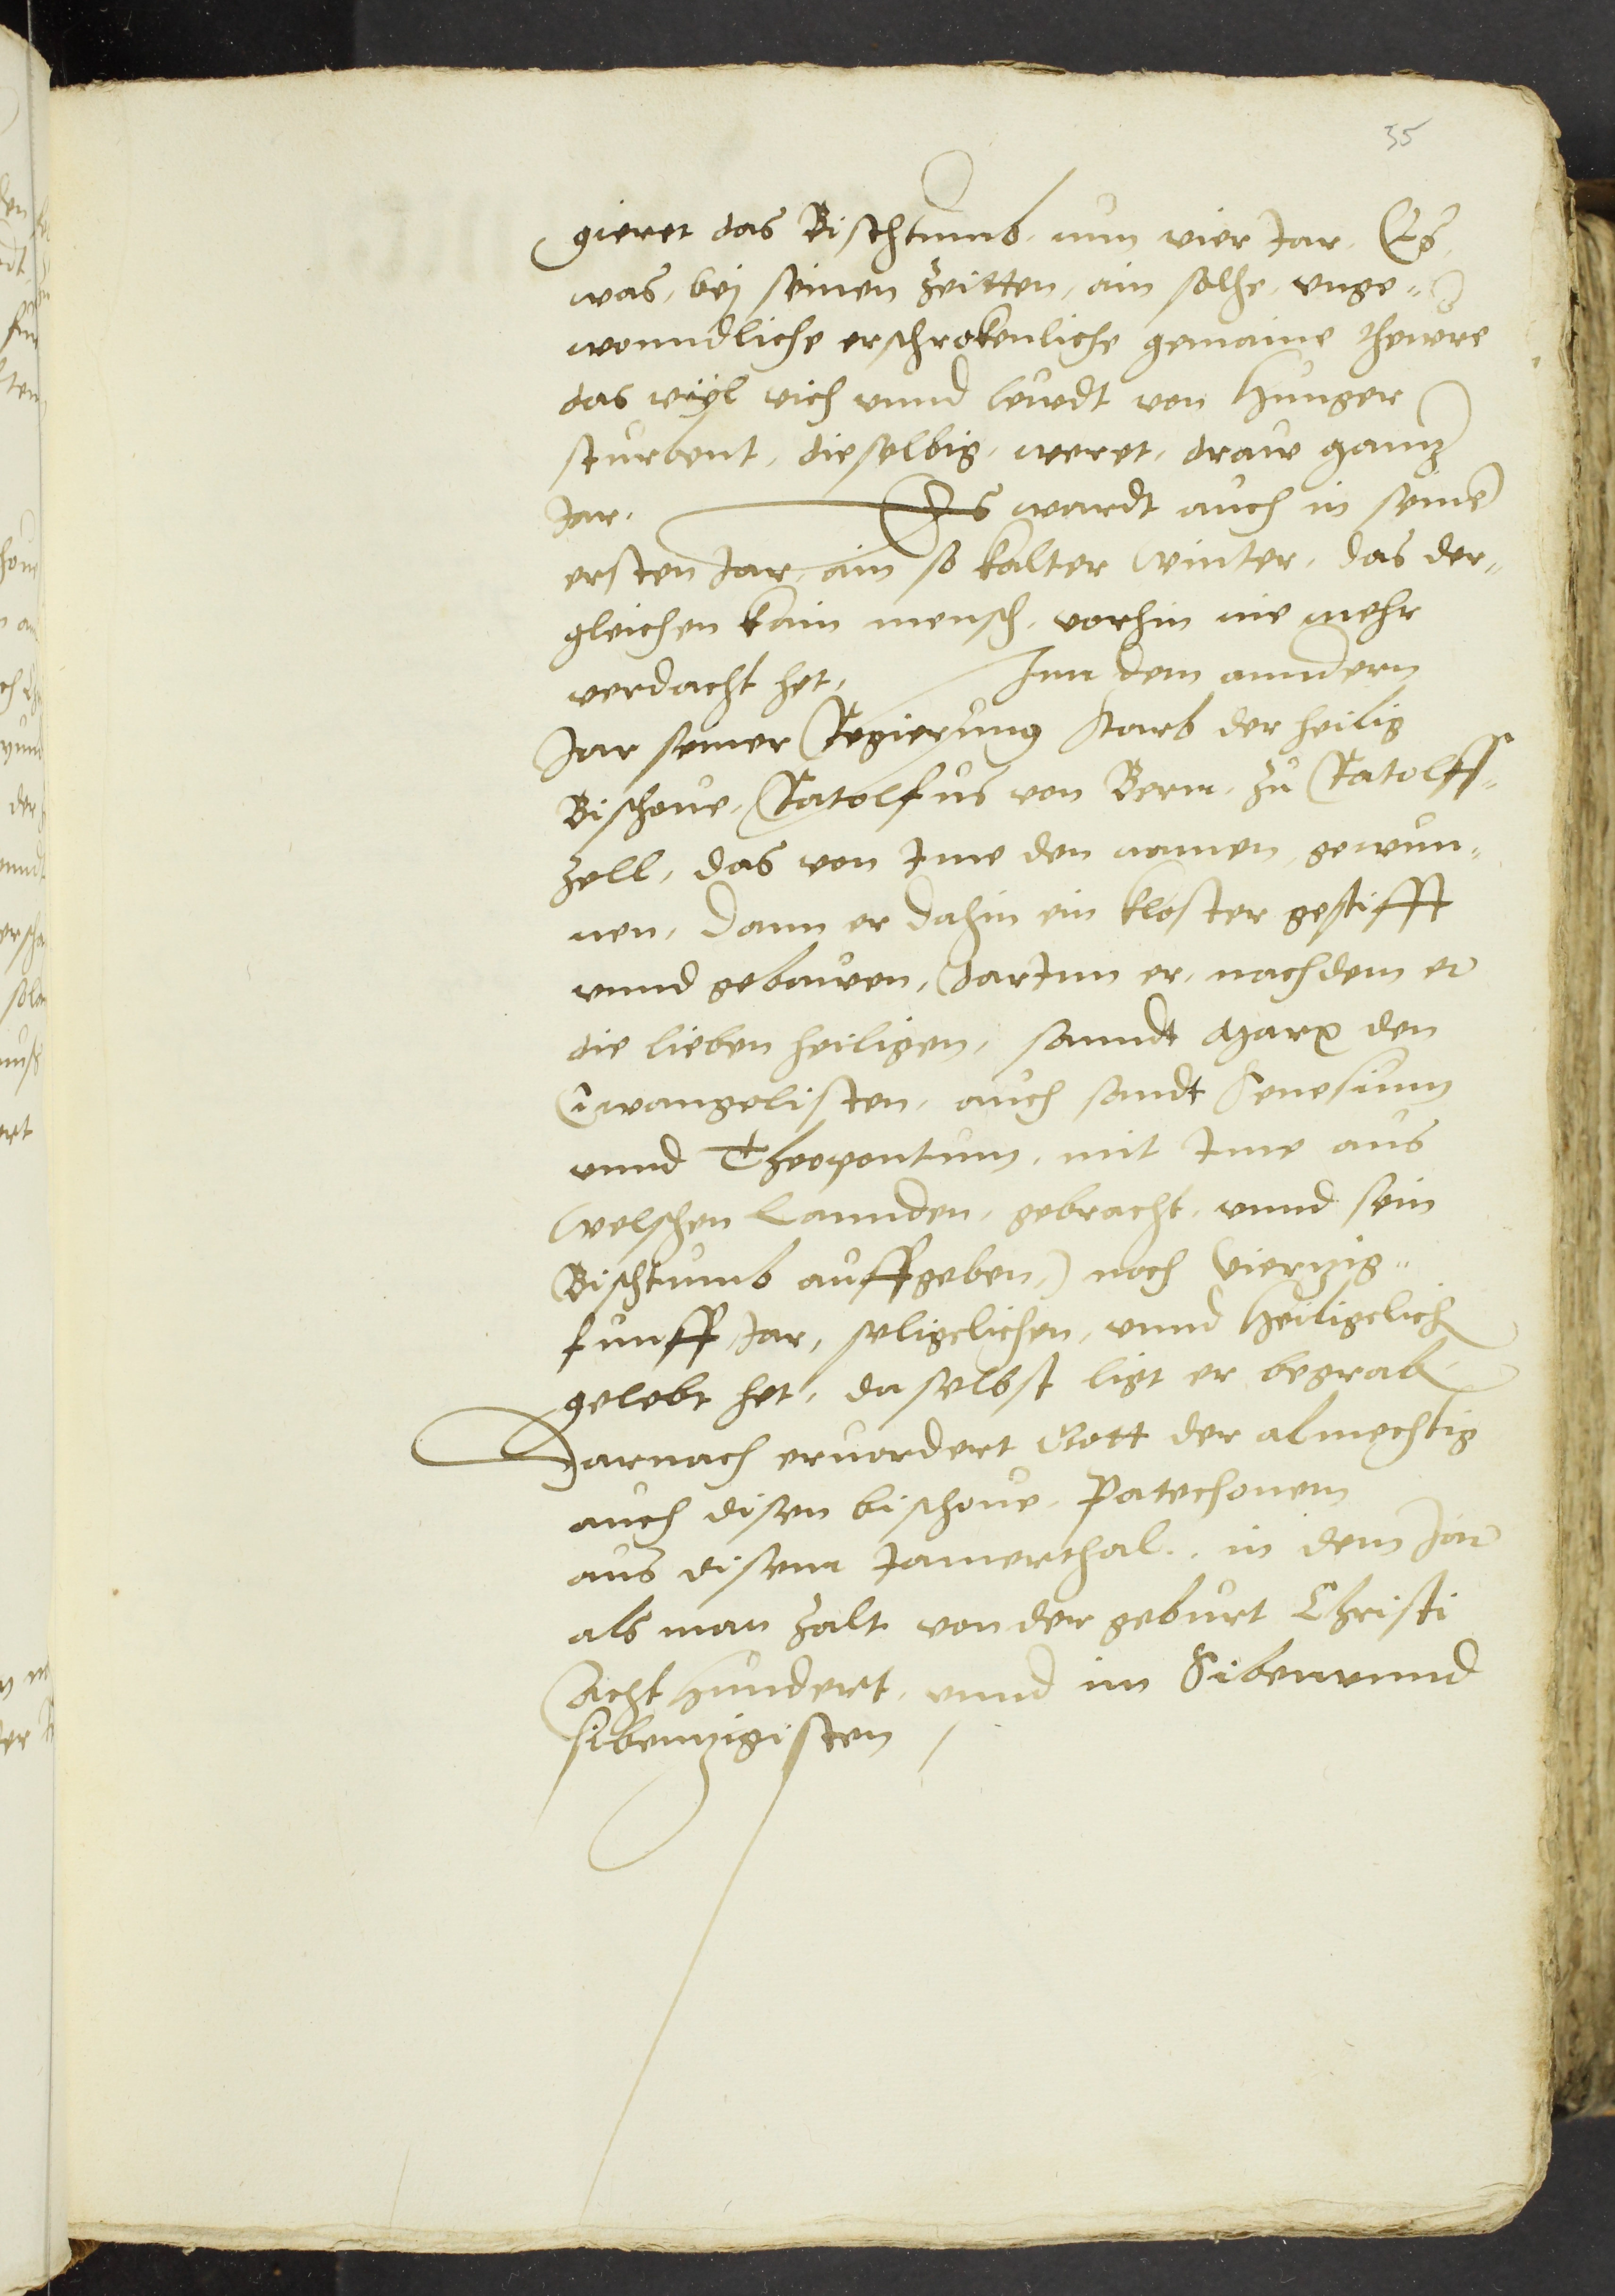 35
gieret das Bischtumb, nun vier Jar, Es
was, bej seinen Zeitten, ain solhe, vnge=
wonndliche erschrokenliche gemaine thewre
das vÿl vich vnnd leudt von Hunger
sturbent, dieselbig, weret, draw gannz
Jar. Es wardt auch in seinē
ersten Jar, ain so kalter Winter, das der=
gleichen kain mensch, vorhin nie mehr
verdacht het, Inn dem anndern
Jar seiner Regierung starb der heilig
Bischoue, Ratolfus von Bern, zu Ratolffs=
zell, das von Ime den namen, gewun=
nen, dann er dahin ein kloster gestifft
vnnd gebauwen, (darInn er, nachdem er
die lieben heiligen, sanndt Marx den
Ewangelisten, auch sandt Senesium
vnnd Theopontum, mit Ime aus
Welschen Lannden, gebracht, vnnd sein
Bischtumb auffgeben,) noch vierzig=
funff Jar, seligelichen, vnnd heiligelich
gelebt het, daselbst ligt er begrab
Darnach eruordert Gott der almechtig
auch disen bischoue, Patechonem
aus disem Jamerthal, in dem Jar
als man zalt von der geburt Christi
Acht hundert, vnnd im Sibenvnnd
sibenzigisten